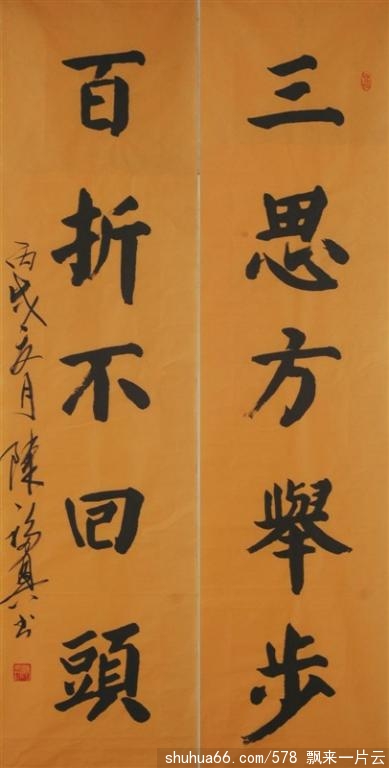 三思方舉步
百折不回頭
丙戌年月 陳 書
shuhua66.com/578 飘来一片云